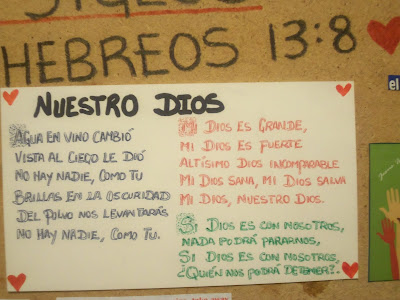 SIGLOS
HEBREOS 13:8
el
NUESTRO DIOS
AGUA EN VINO CAMBIÓ
VISTA AL CIEGO LE DIÓ
NO HAY NADIE, COMO TU
BRILLAS EN LA OSCURIDAD
DEL POLVO NOS LEVANTARÁS
NO HAY NADIE, COMO TU.
MI DIOS ES GRANDE,
MI DIOS ES FUERTE
ALTÍSIMO DIOS INCOMPARABLE
MI DIOS SANA, MI DIOS SALVA
MI DIOS, NUESTRO DIOS.
SI DIOS ES CON NOSOTROS,
NADA PODRÁ PARARNOS,
SI DIOS ES CON NOSOTROS,
¿QUIÉN NOS PODRÁ DETENER?.